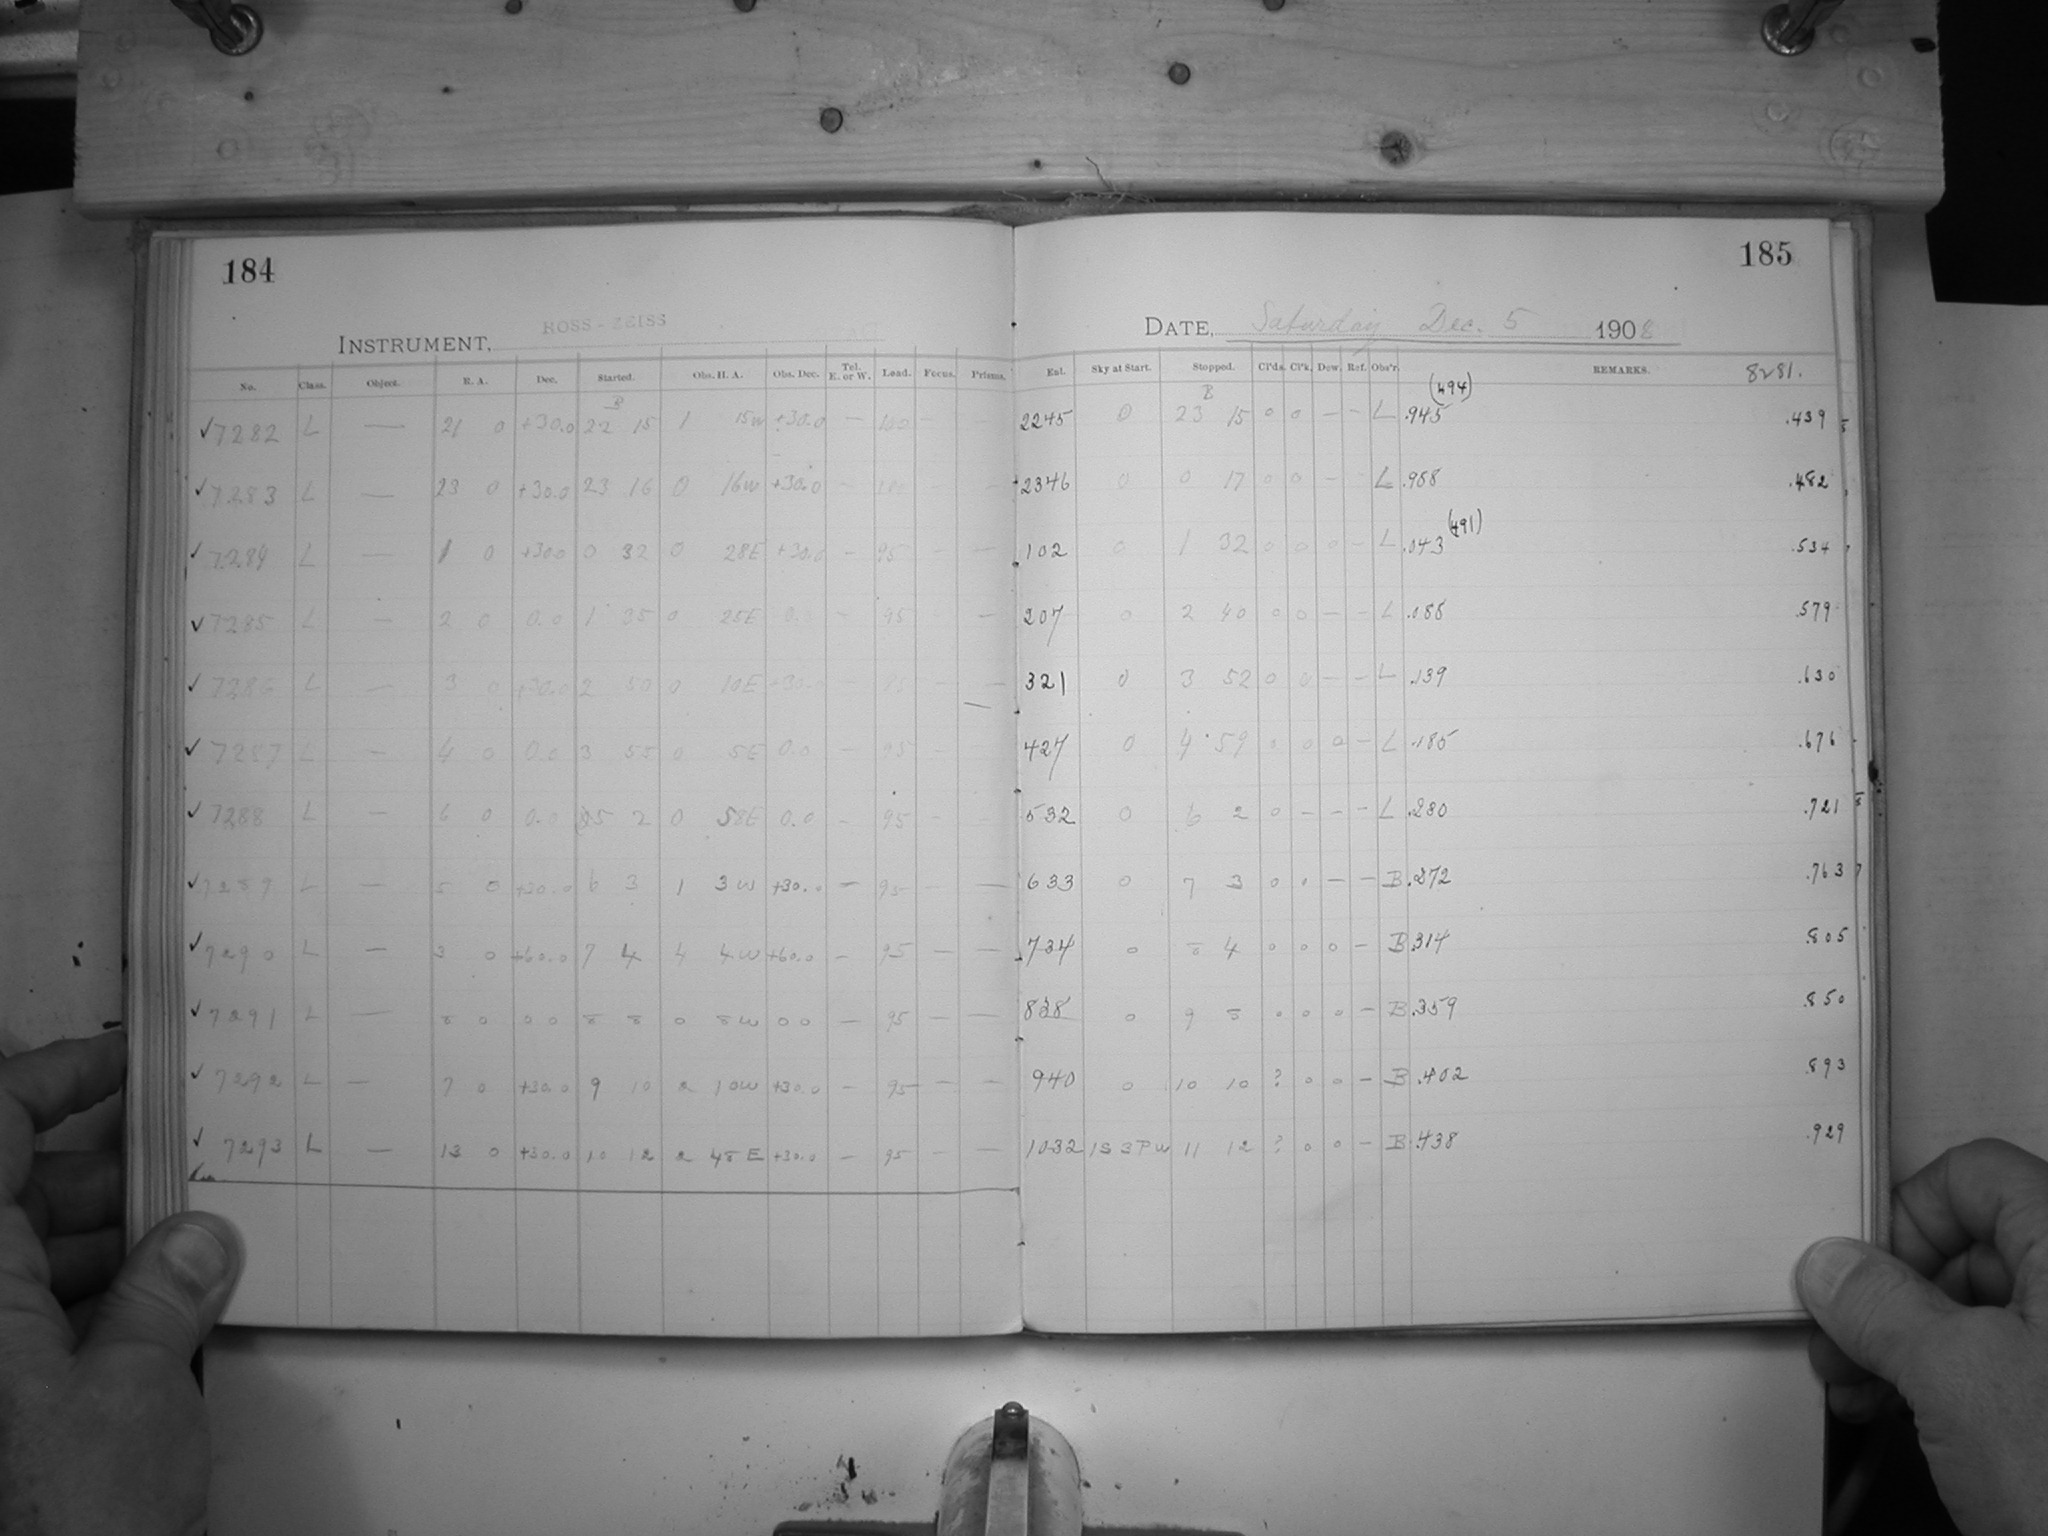 184
INSTRUMENT, ROSS-ZEISS
No. Class. Object. R. A. Dec. Started. Obs. H. A. Obs. Dec. Tel. E. or W. Load. Focus. Prisms.
B
✓7282 L — 21 0 +30.0 22 15 1 15W +30.0 — 100 — —
✓7283 L — 23 0 +30.0 23 16 0 16W +30.0 — 100 — —
✓7284 L — 1 0 +30.0 0 32 0 28E +30.0 — 95 — —
✓7285 L — 2 0 0.0 1 35 0 25E 0.0 — 95 — —
✓7286 L — 3 0 +30.0 2 50 0 10E +30.0 — 95 — —
✓7287 L — 4 0 0.0 3 55 0 5E 0.0 — 95 — —
✓7288 L — 6 0 0.0 5 2 0 58E 0.0 — 95 — —
✓7289 L — 5 0 +30.0 6 3 1 3W +30.0 — 95 — —
✓7290 L — 3 0 +60.0 7 4 4 4W +60.0 — 95 — —
✓7291 L — 8 0 0 0 8 8 0 8W 0 0 — 95 — —
✓7292 L — 7 0 +30.0 9 10 2 10W +30.0 — 95 — —
✓7293 L — 13 0 +30.0 10 12 2 48E +30.0 — 95 — —
185
DATE, Saturday Dec. 5 1908
Ent. Sky at Start. Stopped. Cl'ds. Cl'k. Dew. Ref. Obs'r. REMARKS. 8281.
B (494)
2245 0 23 15 0 0 — — L .945 .439
2346 0 0 17 0 0 — L .988 .482
(491)
102 0 1 32 0 0 0 — L .043 .534
207 0 2 40 0 0 — — L .088 .579
321 0 3 52 0 0 — — L .139 .630
427 0 4 59 0 0 0 — L .185 .676
532 0 6 2 0 — — — L .280 .721
633 0 7 3 0 0 — — B .272 .763
734 0 8 4 0 0 0 — B .314 .805
838 0 9 8 0 0 0 — B .359 .850
940 0 10 10 ? 0 0 — B .402 .893
1032 1S 3PW 11 12 ? 0 0 — B .438 .929